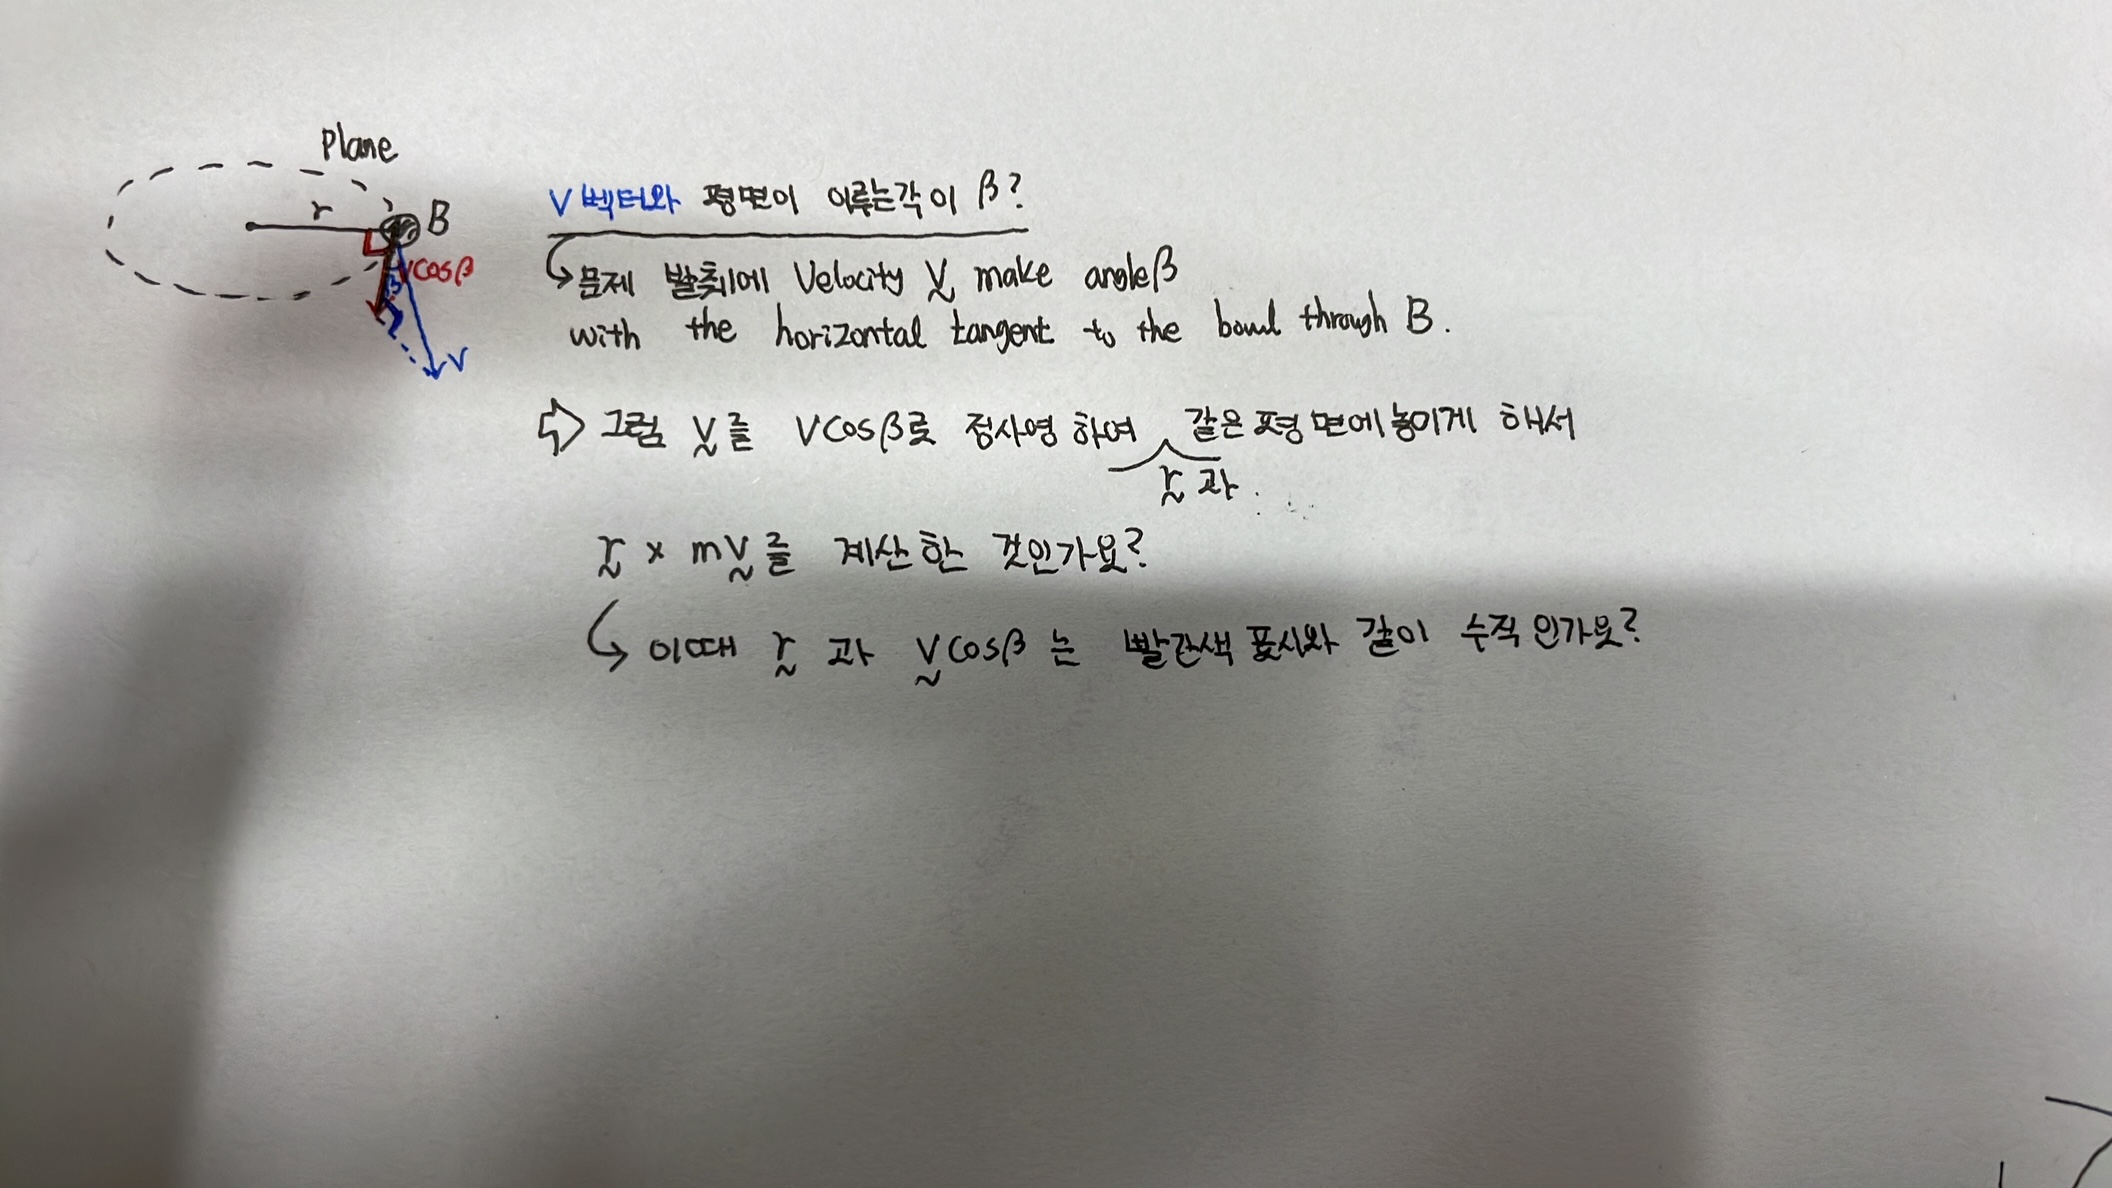 Plane
r
B
vcosβ
β
v
v벡터와 평면이 이루는각이 β?
문제 발췌에 Velocity v make angle β
with the horizontal tangent to the bowl through B.
그럼 v를 vcosβ로 정사영 하여 같은 평면에 놓이게 해서
r과
r × mv를 계산한 것인가요?
이때 r 과 vcosβ 는 빨간색 표시와 같이 수직인가요?